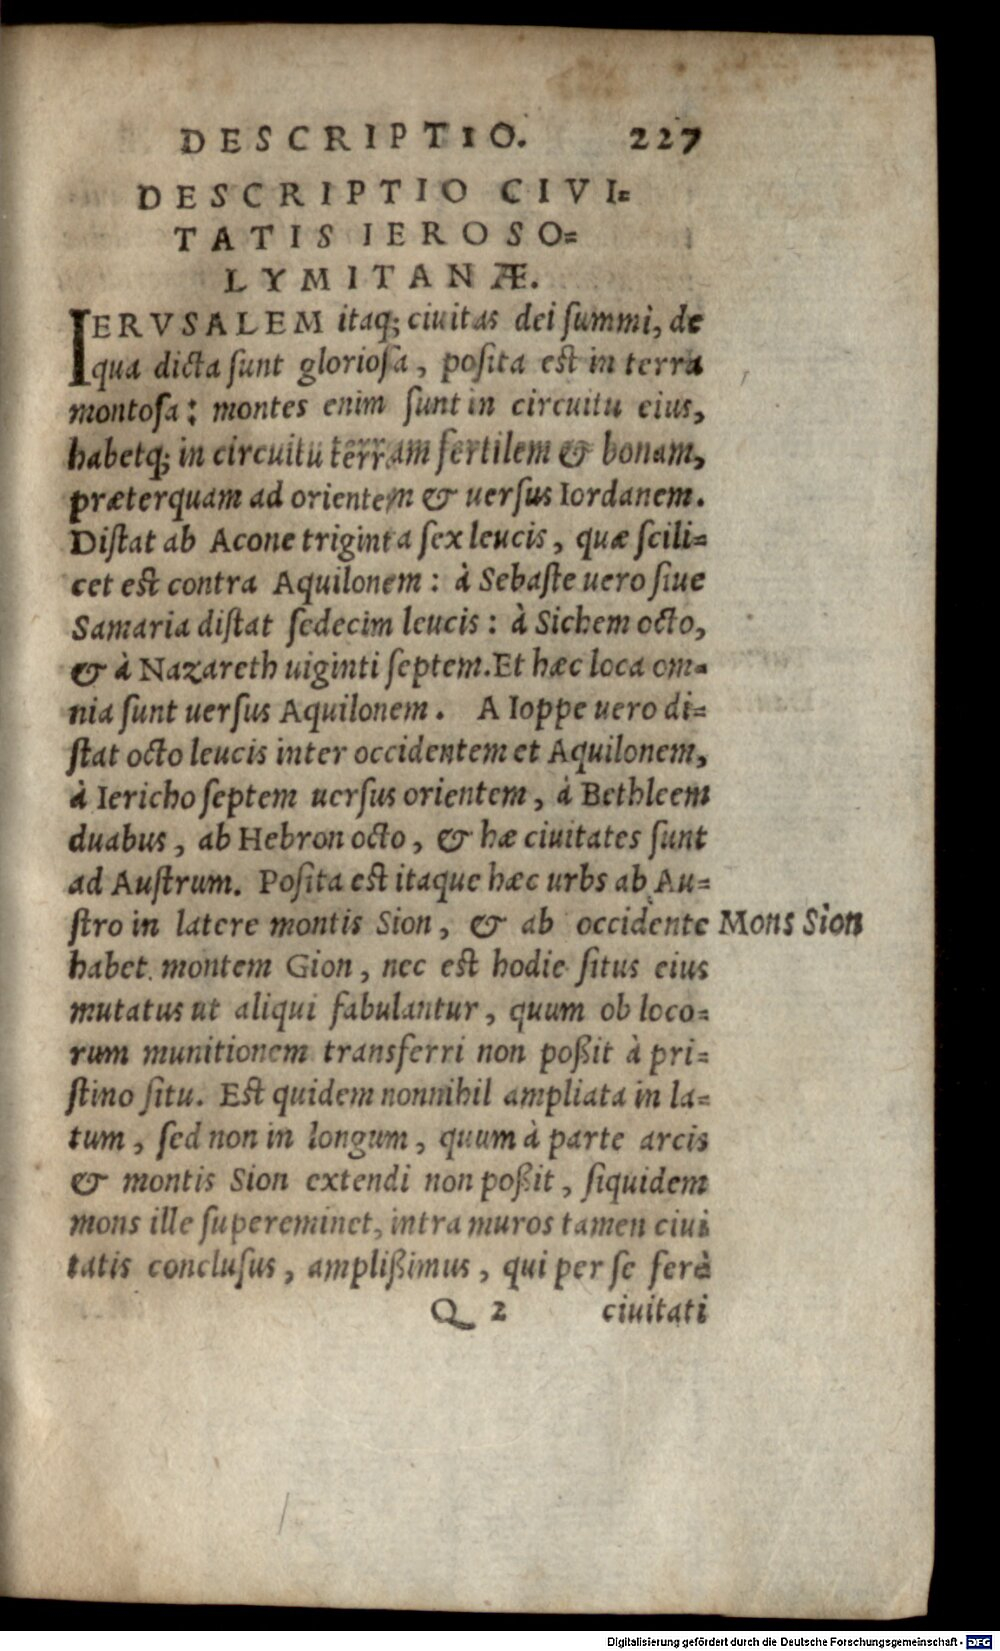 DESCRIPTIO. 227
DESCRIPTIO CIVI=
TATIS IEROSO=
LYMITANÆ.
IERVSALEM itaq; ciuitas dei summi, de
qua dicta sunt gloriosa, posita est in terra
montosa: montes enim sunt in circuitu eius,
habetq; in circuitu terram fertilem & bonam,
præterquam ad orientem & uersus Iordanem.
Distat ab Acone triginta sex leucis, quæ scili=
cet est contra Aquilonem: à Sebaste uero siue
Samaria distat sedecim leucis: à Sichem octo,
& à Nazareth uiginti septem. Et hæc loca om=
nia sunt uersus Aquilonem. A Ioppe uero di=
stat octo leucis inter occidentem et Aquilonem,
à Iericho septem uersus orientem, à Bethleem
duabus, ab Hebron octo, & hæ ciuitates sunt
ad Austrum. Posita est itaque hæc urbs ab Au=
stro in latere montis Sion, & ab occidente Mons Sion
habet montem Gion, nec est hodie situs eius
mutatus ut aliqui fabulantur, quum ob loco=
rum munitionem transferri non poßit à pri=
stino situ. Est quidem nonnihil ampliata in la=
tum, sed non in longum, quum à parte arcis
& montis Sion extendi non poßit, siquidem
mons ille supereminet, intra muros tamen ciui
tatis conclusus, amplißimus, qui per se ferè
Q 2 ciuitati
Digitalisierung gefördert durch die Deutsche Forschungsgemeinschaft - DFG